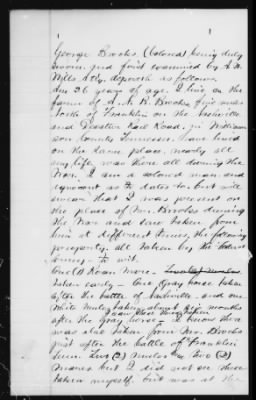 George Brooks (Colored) being duly
sworn and first examined by A. N.
Wills Atty. deposeth as follows
I am 26 years of age. I live on the
farm of A. N. R. Brooks, five miles
North of Franklin on the Nashville
and Decatur Rail Road, in William
son County Tennessee. Have lived
on the same place nearly all
my life, was there all during the
War. I am a colored man and
ignorant as to dates &c. but will
swear that I was present on
the place of Mr. Brooks during
the War and saw taken from
him at different times, the following
property, all taken by the Federal
Army - to wit.
One (1) Roan Mare -
taken early - One Gray horse taken
after the battle of Nashville, and one
White mule taken about six months
after the Gray horse - I know there
was also taken from Mr. Brooks
just after the battle of Franklin
Tenn. Two (2) mules & two (2)
Mares but I did not see these
taken myself, but was at the